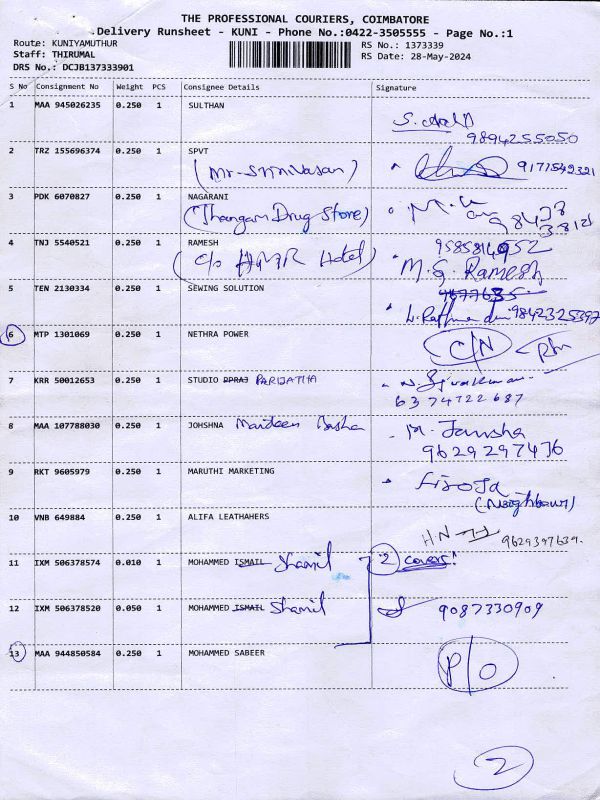 THE PROFESSIONAL COURIERS, COIMBATORE
.Delivery Runsheet - KUNI - Phone No.:0422-3505555 - Page No.:1
Route: KUNIYAMUTHUR RS No.: 1373339
Staff: THIRUMAL RS Date: 28-May-2024
DRS No.: DCJB137333901
S No Consignment No Weight PCS Consignee Details Signature
1 MAA 945026235 0.250 1 SULTHAN
9894255050
2 TRZ 155696374 0.250 1 SPVT
(Mr. Srinivasan) 9171549321
3 PDK 6070827 0.250 1 NAGARANI
(Thangam Drug Store)
4 TNJ 5540521 0.250 1 RAMESH
C/o Hotel) M.G. Ramesh
5 TEN 2130334 0.250 1 SEWING SOLUTION
9842325397
6 MTP 1301069 0.250 1 NETHRA POWER C/N
7 KRR 50012653 0.250 1 STUDIO PARIJATHA
6374722687
8 MAA 107788030 0.250 1 JOHSHNA Maideen Basha M. Jansha
9629297476
9 RKT 9605979 0.250 1 MARUTHI MARKETING Firoja
(Neighbour)
10 VNB 649884 0.250 1 ALIFA LEATHAHERS
9629397639.
11 IXM 506378574 0.010 1 MOHAMMED ISMAIL Shamil 2 covers!
12 IXM 506378520 0.050 1 MOHAMMED ISMAIL Shamil 9087330909
13 MAA 944850584 0.250 1 MOHAMMED SABEER P/O
2